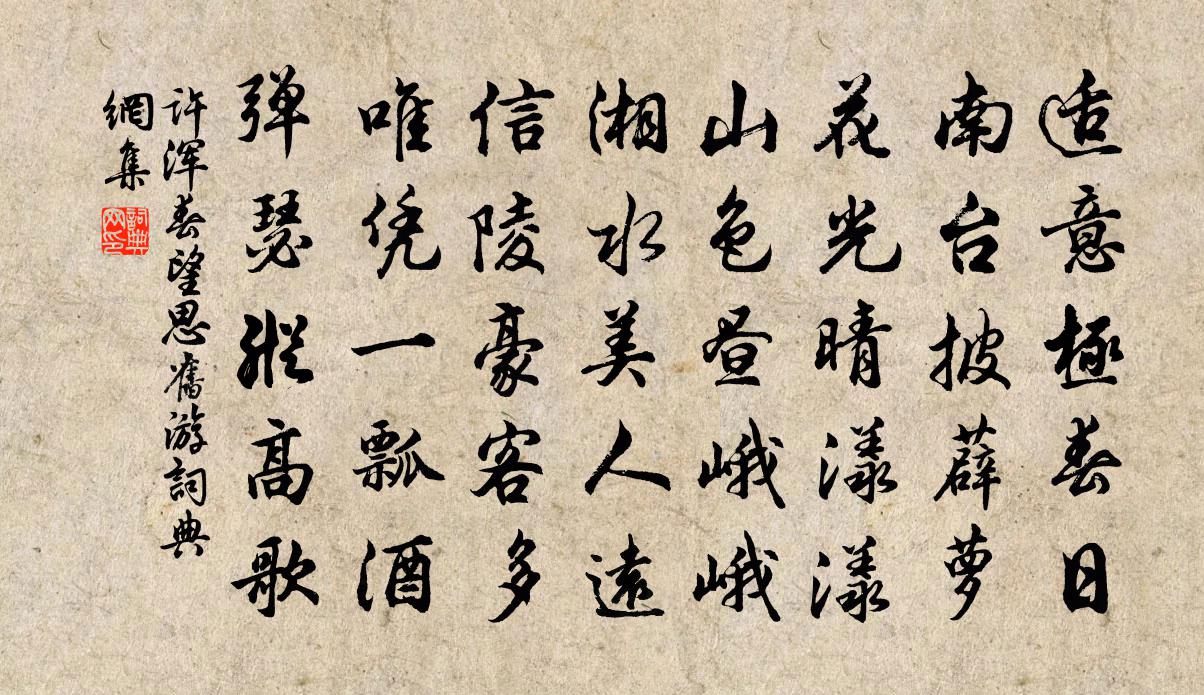 适意極春日
南台披薜萝
花光晴漾漾
山色昼峨峨
湘水美人遠
信陵豪客多
唯凭一瓢酒
弹瑟縱高歌
许浑春望思舊游詞典
網集
詞典网印